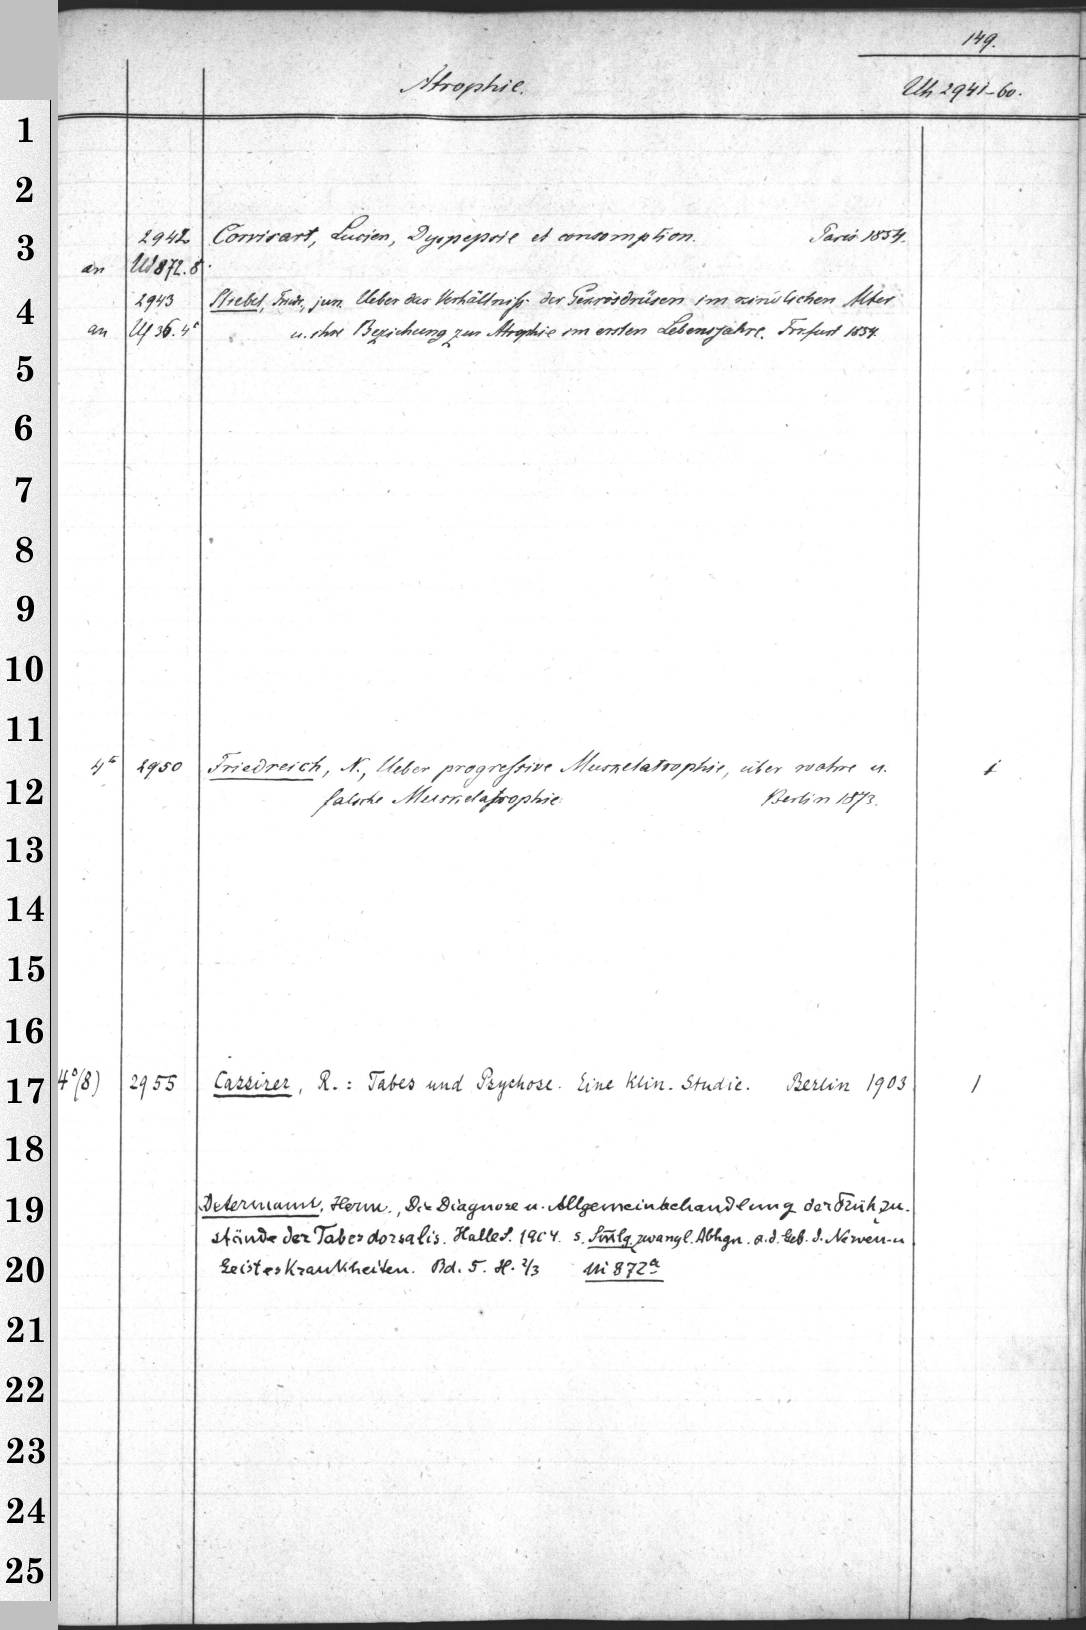 149.
Atrophie.
Uh 2941-60.
2942 Corvisart, Lucien, Dyspepsie et consomption. Paris 1854.
an Ud 872.8°
2943 Stiebel, Friedr., jun. Ueber das Verhältniss der Gekrösdrüsen im kindlichen Alter
an Uf 36.4° u. ihre Beziehung zur Atrophie im ersten Lebensjahre. Frkfurt 1854.
4° 2950 Friedreich, N., Ueber progressive Muskelatrophie, über wahre u. 1
falsche Muskelatrophie. Berlin 1873.
4°(8) 2955 Cassirer, R.: Tabes und Psychose. Eine klin. Studie. Berlin 1903 1
Determann, Herm., Die Diagnose u. Allgemeinbehandlung der Frühzu-
stände der Tabes dorsalis. Halle S. 1904. s. Smlg. zwangl. Abhgn. a. d. Geb. d. Nerven- u
Geisteskrankheiten. Bd. 5. H. 2/3 Ui 872a